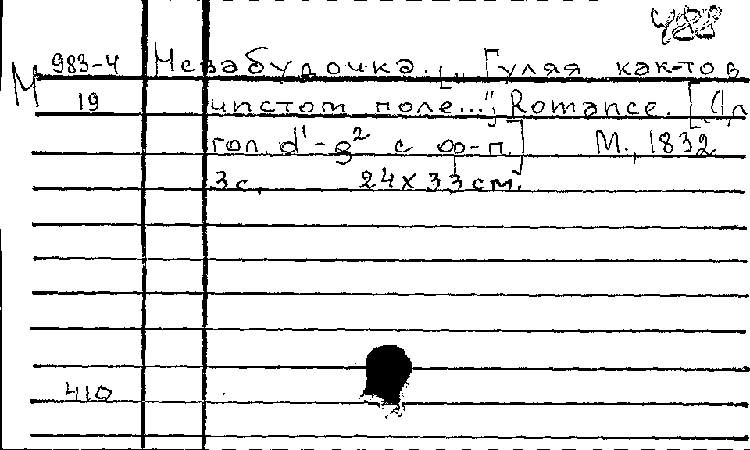 488
М 983-4 Незабудочка. [„Гуляя как-то в
19 чистом поле..."] Romance. [Дл
гол. d¹-g² с фо-п.] М., 1832.
3 с. 24 х 33 см.
410